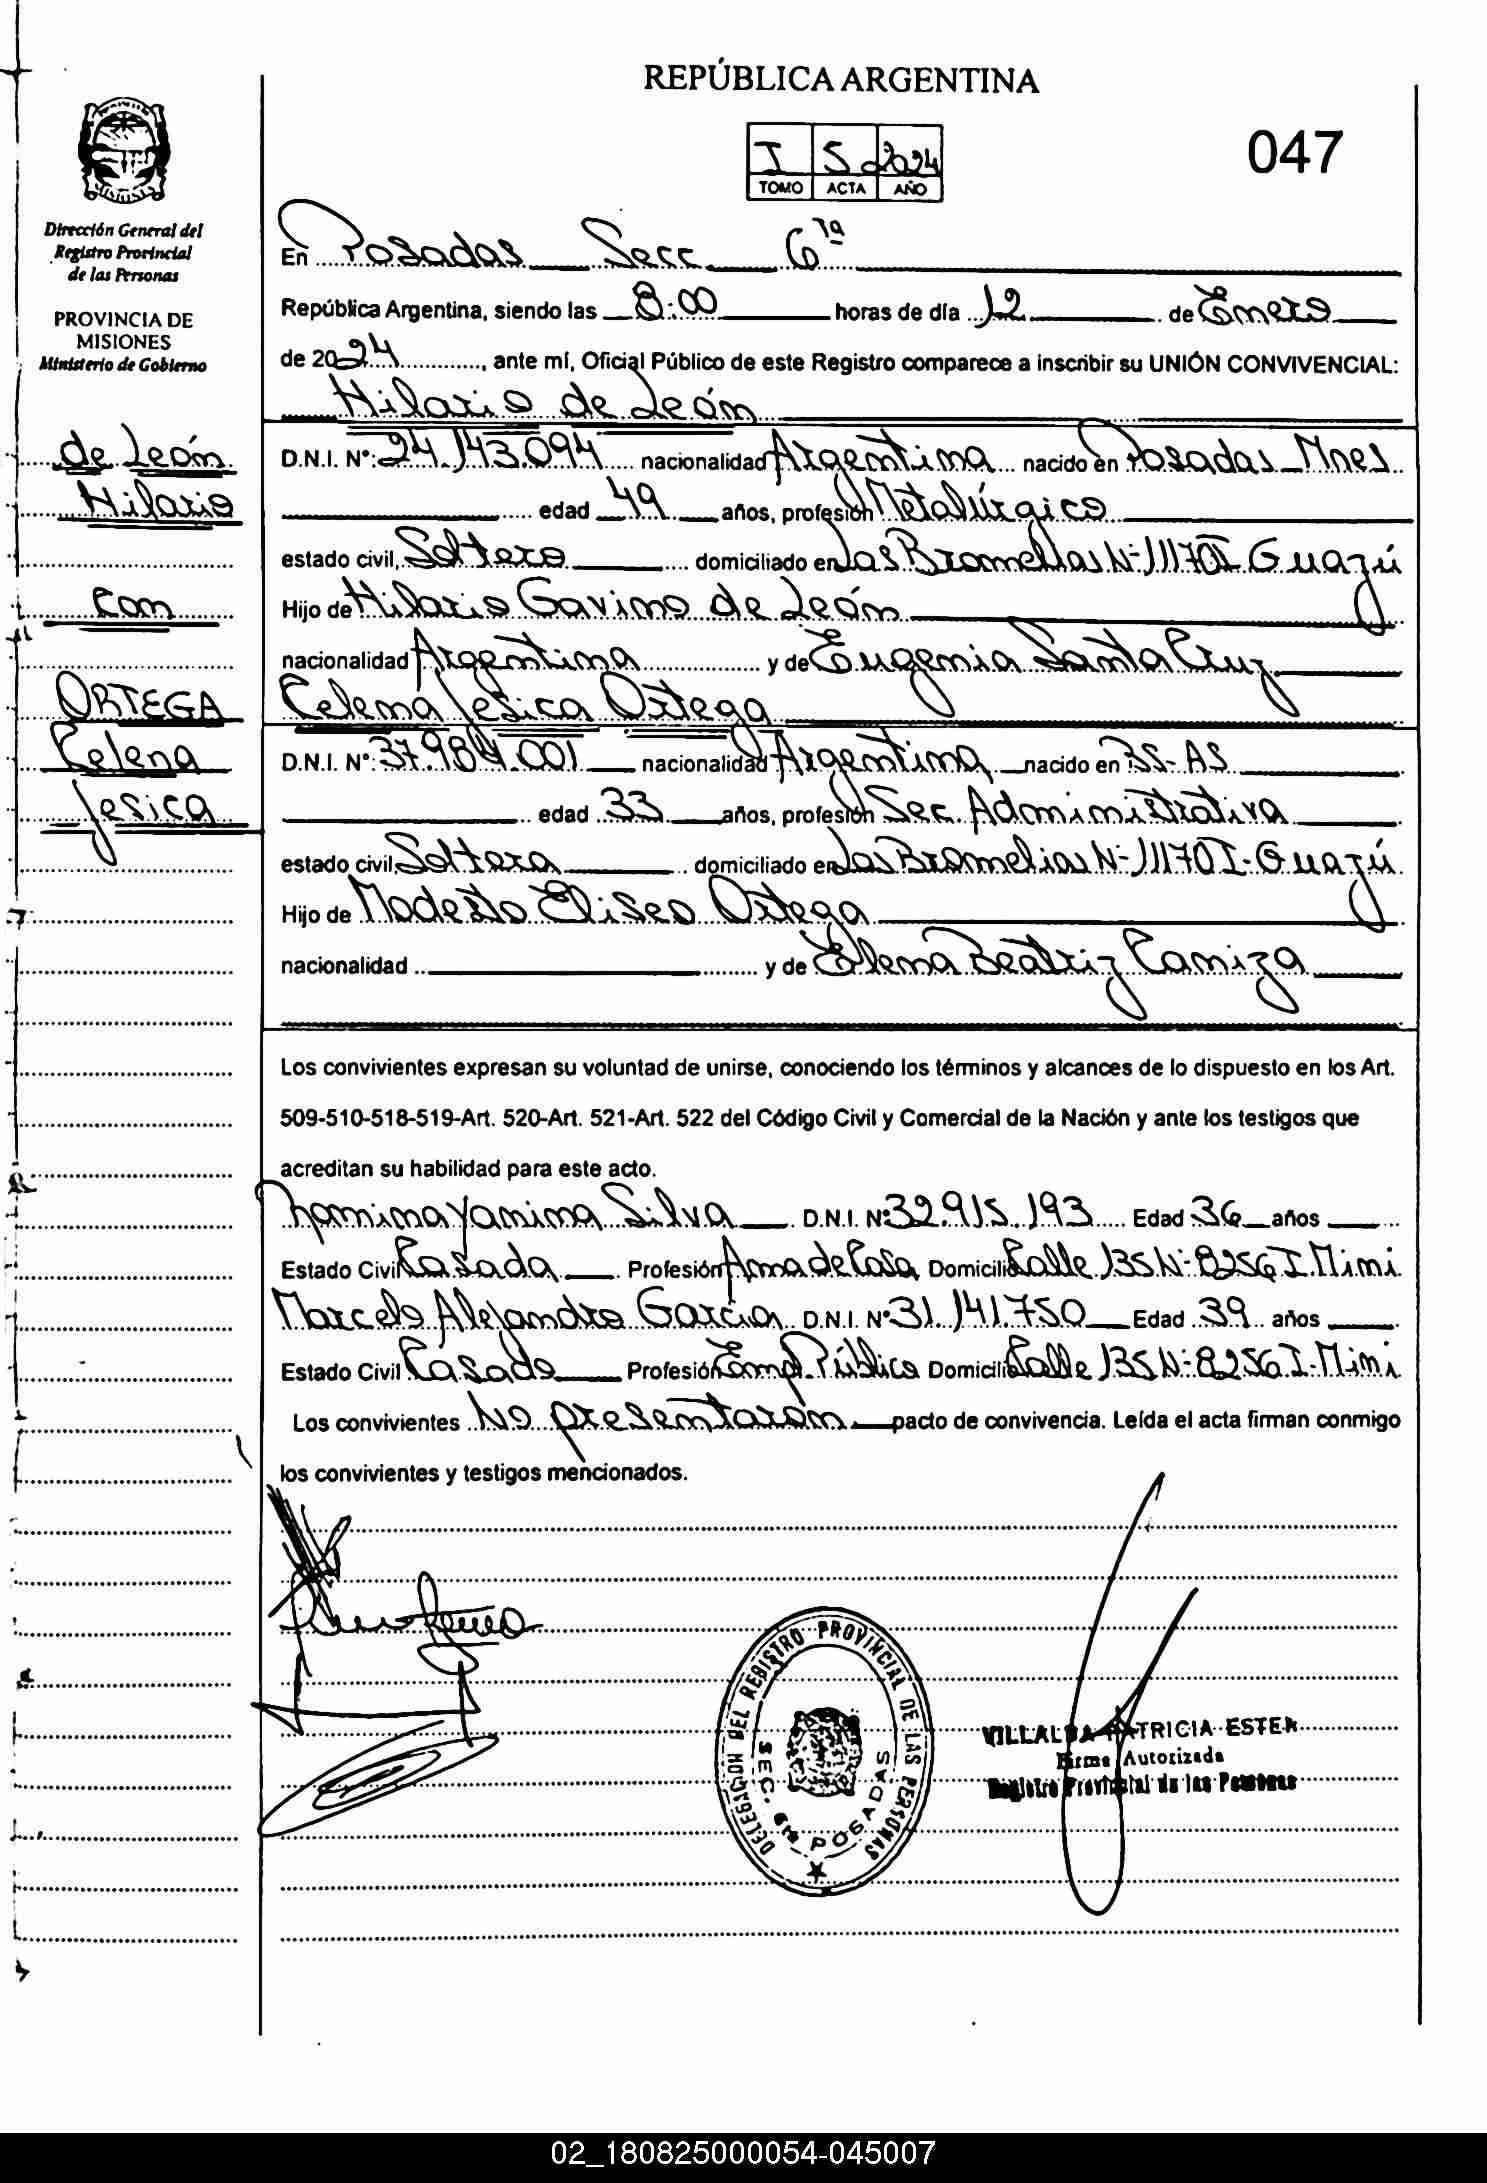 REPÚBLICA ARGENTINA
I S 2024
TOMO ACTA AÑO
047
MISIONES
Dirección General del
Registro Provincial
de las Personas
PROVINCIA DE
MISIONES
Ministerio de Gobierno
de León
Hilario
con
ORTEGA
Celena
Jesica
En Posadas Secc 6ta
República Argentina, siendo las 8:00 horas de día 12 de Enero
de 2024, ante mí, Oficial Público de este Registro comparece a inscribir su UNIÓN CONVIVENCIAL:
Hilario de León
D.N.I. Nº: 24.143.094 nacionalidad Argentina nacido en Posadas Mnes
edad 49 años, profesión Metalúrgico
estado civil, Soltero domiciliado en Las Bromelias N-11170 I-Guazú
Hijo de Hilario Gavino de León
nacionalidad Argentina y de Eugenia Santa Cruz
Celena Jesica Ortega
D.N.I. Nº: 37.984.001 nacionalidad Argentina nacido en BS-AS
edad 33 años, profesión Sec. Administrativa
estado civil Soltera domiciliado en Las Bromelias N-11170 I-Guazú
Hijo de Modesto Eliseo Ortega
nacionalidad y de Elena Beatriz Caniza
Los convivientes expresan su voluntad de unirse, conociendo los términos y alcances de lo dispuesto en los Art.
509-510-518-519-Art. 520-Art. 521-Art. 522 del Código Civil y Comercial de la Nación y ante los testigos que
acreditan su habilidad para este acto.
Romina Yanina Silva D.N.I. Nº 32.915.193 Edad 36 años
Estado Civil Casada Profesión Ama de Casa Domicilio Calle 135 N-8256 I.Mini
Marcelo Alejandro García D.N.I. Nº 31.141.750 Edad 39 años
Estado Civil Casado Profesión Emp. Público Domicilio Calle 135 N-8256 I-Mini
Los convivientes No presentaron pacto de convivencia. Leída el acta firman conmigo
los convivientes y testigos mencionados.
DELEGACION DEL REGISTRO PROVINCIAL DE LAS PERSONAS
SEC. 6ta POSADAS
VILLALBA PATRICIA ESTER
Firma Autorizada
Registro Provincial de las Personas
02_180825000054-045007